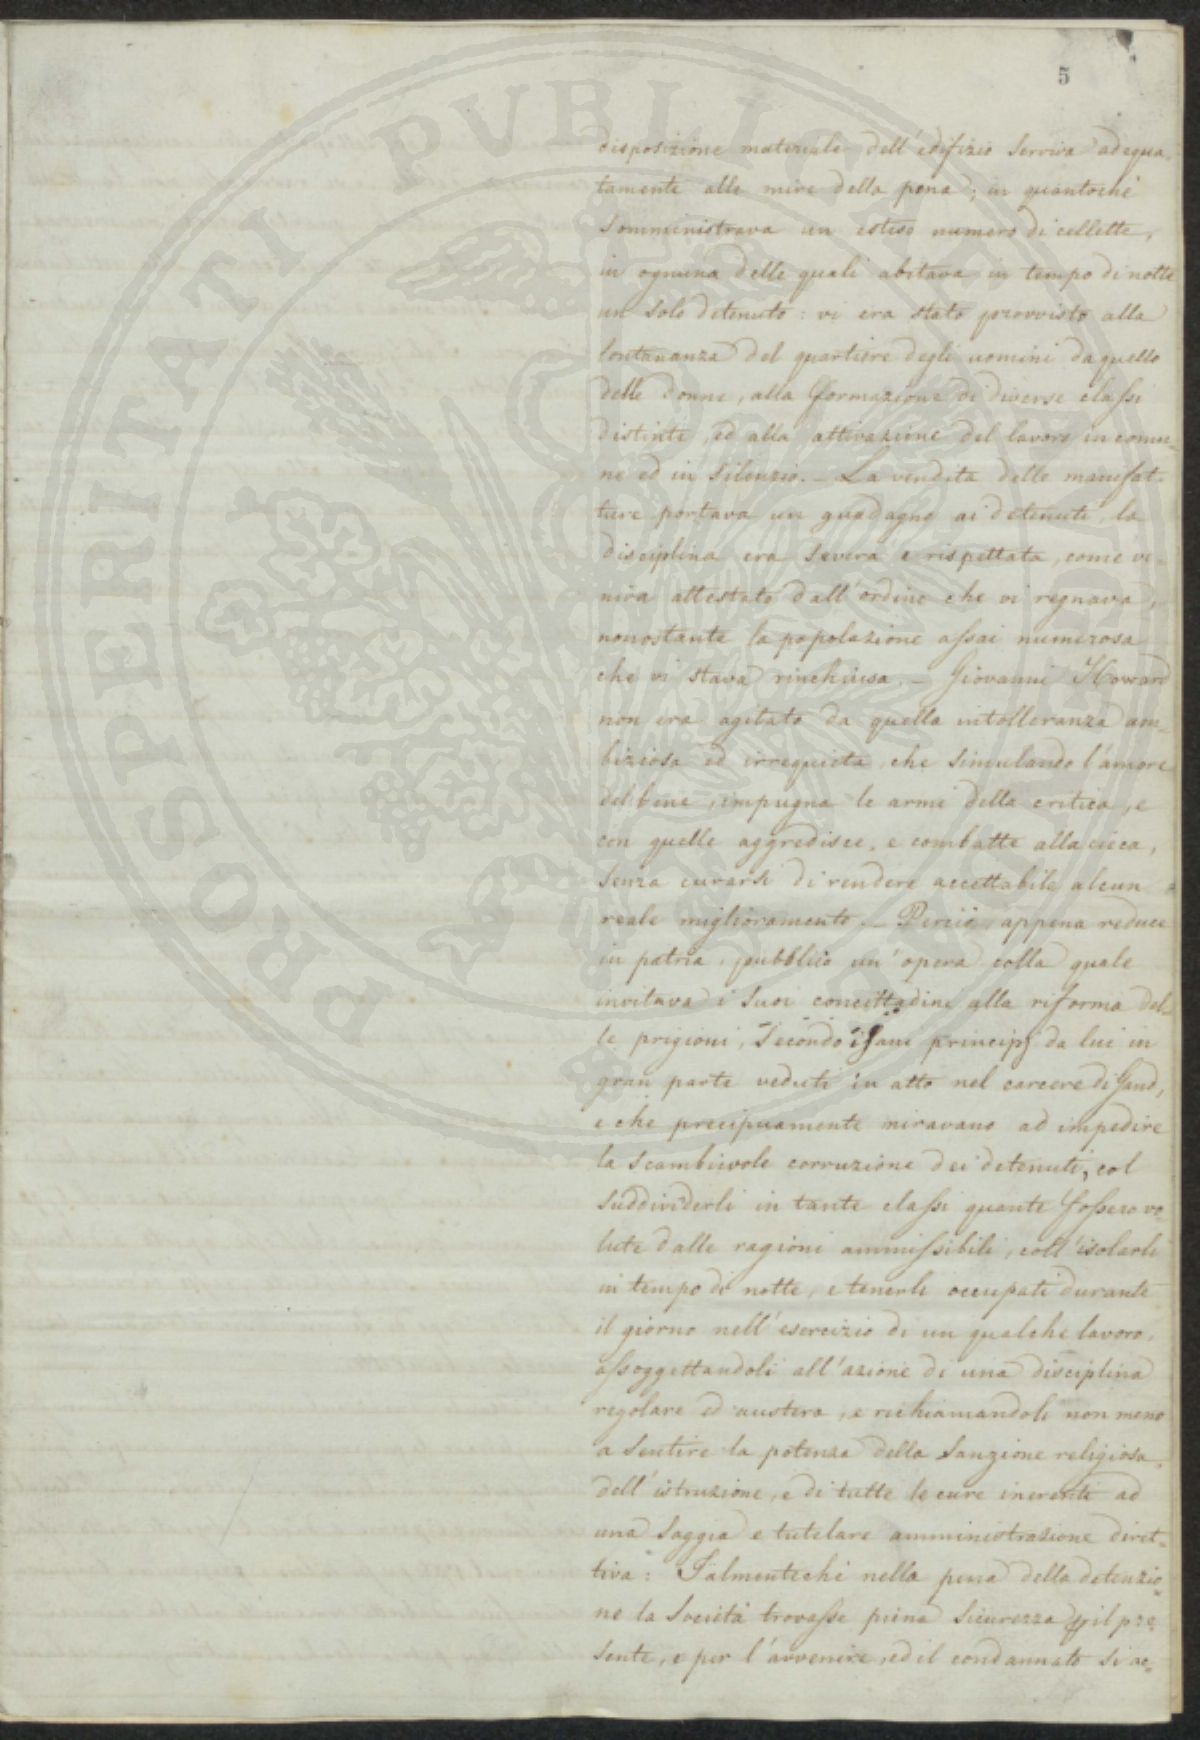 5
PROSPERITATI PUBLICAE
disposizione materiale dell'edifizio serviva adegua-
tamente alle mire della pena; in quantochè
somministrava un esteso numero di cellette,
in ognuna delle quali abitava in tempo di notte
un solo detenuto: vi era stato provvisto alla
lontananza del quartiere degli uomini da quello
delle donne, alla formazione di diverse classi
distinte, ed alla attivazione del lavoro in comu-
ne ed in silenzio. _ La vendita delle manifat-
ture portava un guadagno ai detenuti, la
disciplina era severa e rispettata, come ve-
niva attestato dall'ordine che vi regnava,
nonostante la popolazione assai numerosa
che vi stava rinchiusa. _ Giovanni Howard
non era agitato da quella intolleranza am-
biziosa ed irrequieta, che simulando l'amore
del bene, impugna le armi della critica, e
con quelle aggredisce, e combatte alla cieca,
senza curarsi di rendere accettabile alcun
reale miglioramento. _ Perciò, appena reduce
in patria, pubblicò un'opera colla quale
invitava i suoi concittadini alla riforma del-
le prigioni, secondo i sani principj da lui in
gran parte veduti in atto nel carcere di Gand,
e che precipuamente miravano ad impedire
la scambievole corruzione dei detenuti, col
suddividerli in tante classi quante fossero vo-
lute dalle ragioni ammissibili, coll'isolarli
in tempo di notte, e tenerli occupati durante
il giorno nell'esercizio di un qualche lavoro,
assoggettandoli all'azione di una disciplina
regolare ed austera, e richiamandoli non meno
a sentire la potenza della sanzione religiosa,
dell'istruzione, e di tutte le cure inerenti ad
una saggia e tutelare amministrazione diret-
tiva: Talmentechè nella pena della detenzio-
ne la Società trovasse piena sicurezza pel pre-
sente, e per l'avvenire, ed il condannato si ac-